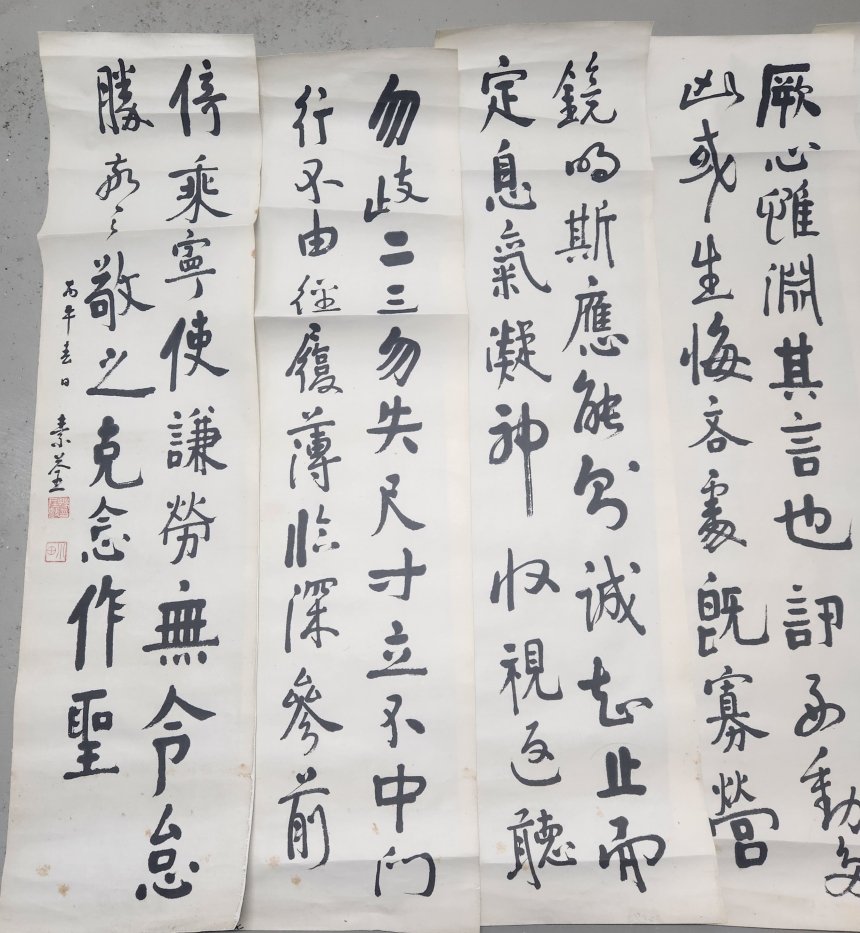 厥心雖淵其言也訒動多
凶或生悔吝處既寡營
鏡明斯應能誠知止而
定息氣凝神收視返聽
勿歧二三勿失尺寸立不中門
行不由徑履薄臨深參前
倚乘寧使謙勞無令怠
勝敬之敬之克念作聖
丙午春日 素荃